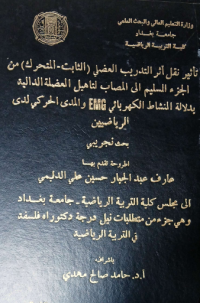 وزارة التعليم العالي والبحث العلمي
جامعة بغداد
كلية التربية الرياضية
تأثير نقل أثر التدريب العضلي (الثابت-المتحرك) من
الجزء السليم الى المصاب لتأهيل العضلة الدالية
بدلالة النشاط الكهربائي EMG والمدى الحركي لدى
الرياضيين
بحث تجريبي
اطروحة تقدم بها
عارف عبد الجبار حسين علي الدليمي
الى مجلس كلية التربية الرياضية - جامعة بغداد
وهي جزء من متطلبات نيل درجة دكتوراه فلسفة
في التربية الرياضية
بأشراف
أ.د. حامد صالح مهدي